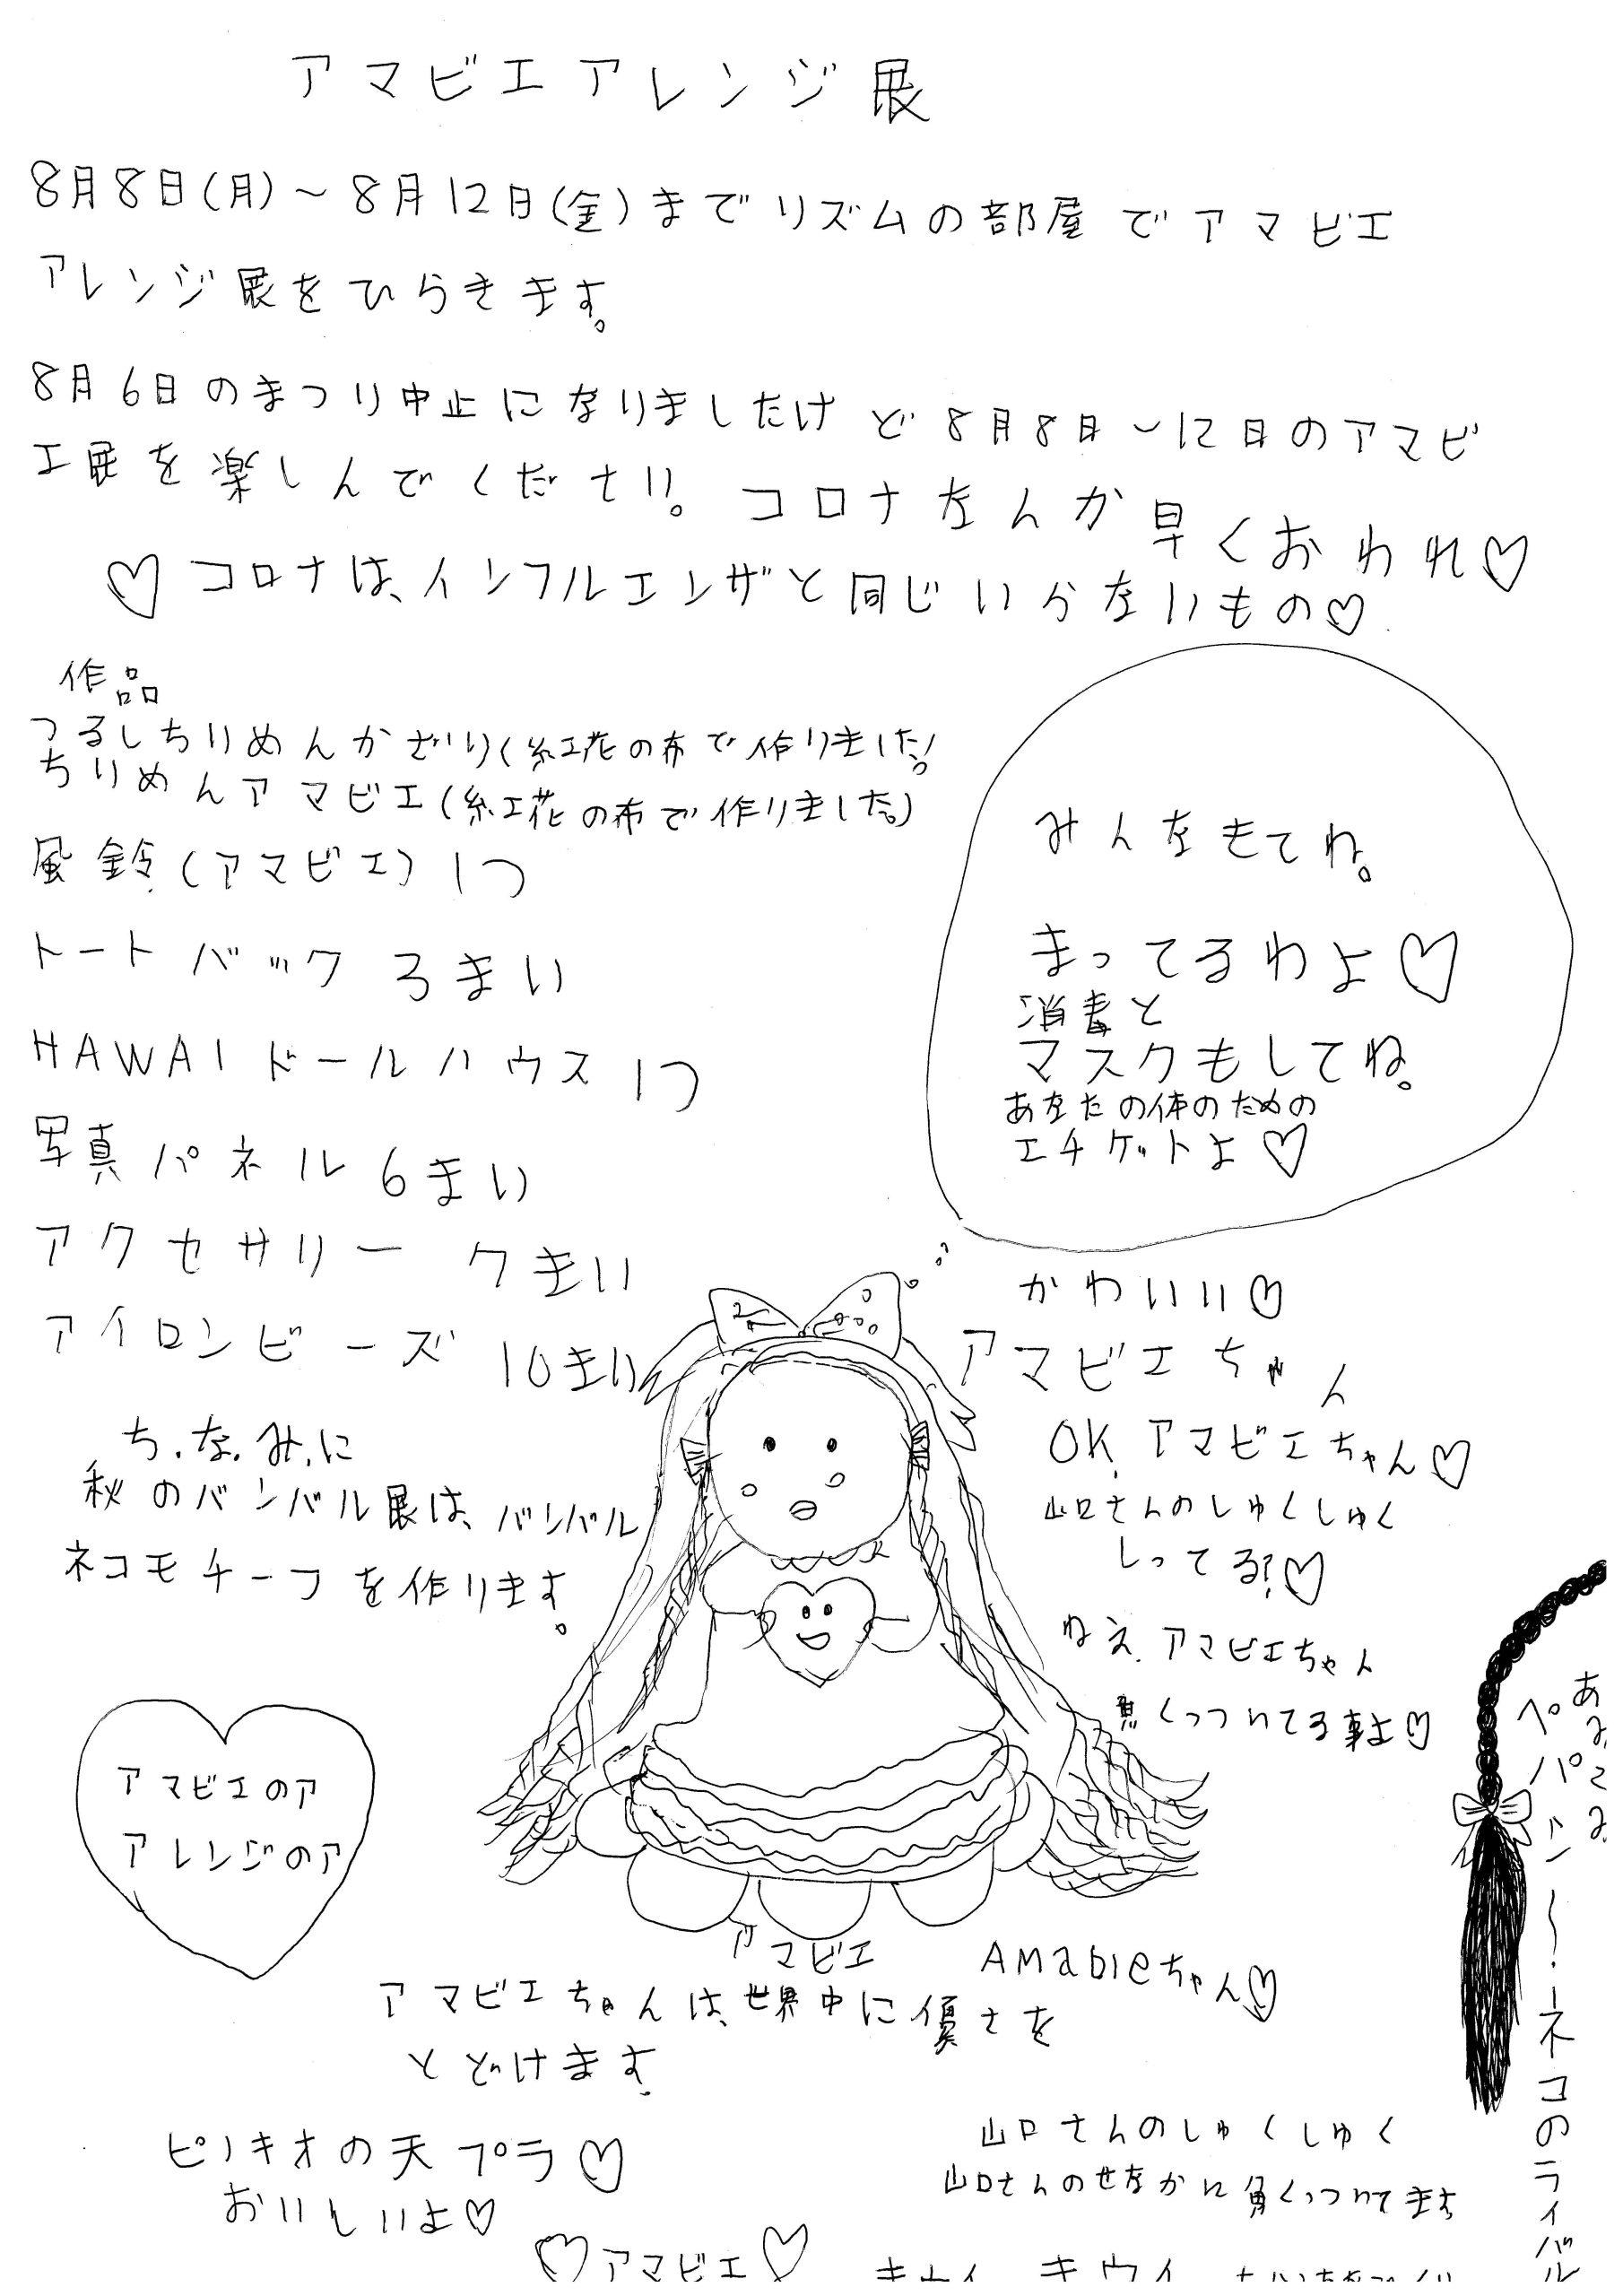 アマビエアレンジ展
8月8日(月)～8月12日(金)までリズムの部屋でアマビエ
アレンジ展をひらきます。
8月6日のまつり中止になりましたけど8月8日～12日のアマビ
エ展を楽しんでください。コロナなんか早くおわれ♡
♡コロナは、インフルエンザと同じいらないもの♡
作品
つるしちりめんかざり(紅花の布で作りました!
ちりめんアマビエ(紅花の布で作りました。)
風鈴(アマビエ)1つ
トートバック3まい
HAWAIドールハウス1つ
写真パネル6まい
アクセサリー7まい
アイロンビーズ10まい
ち.な.み.に
秋のバンバル展は、バンバル
ネコモチーフを作ります。
みんなきてね。
まってるわよ♡
消毒と
マスクもしてね。
あなたの体のための
エチケットよ♡
かわいい♡
アマビエちゃん
OK,アマビエちゃん♡
山口さんのしゅくしゅく
しってる?♡
ねえ、アマビエちゃん
くっついてる事よ♡
アマビエのア
アレンジのア
アマビエ
AMabieちゃん♡
アマビエちゃんは、世界中に優さを
とどけます。
ピノキオの天プラ♡
おいしいよ♡
♡アマビエ♡
山口さんのしゅくしゅく
山口さんのせなかに くっついてます
キウイ
ネコのライバル